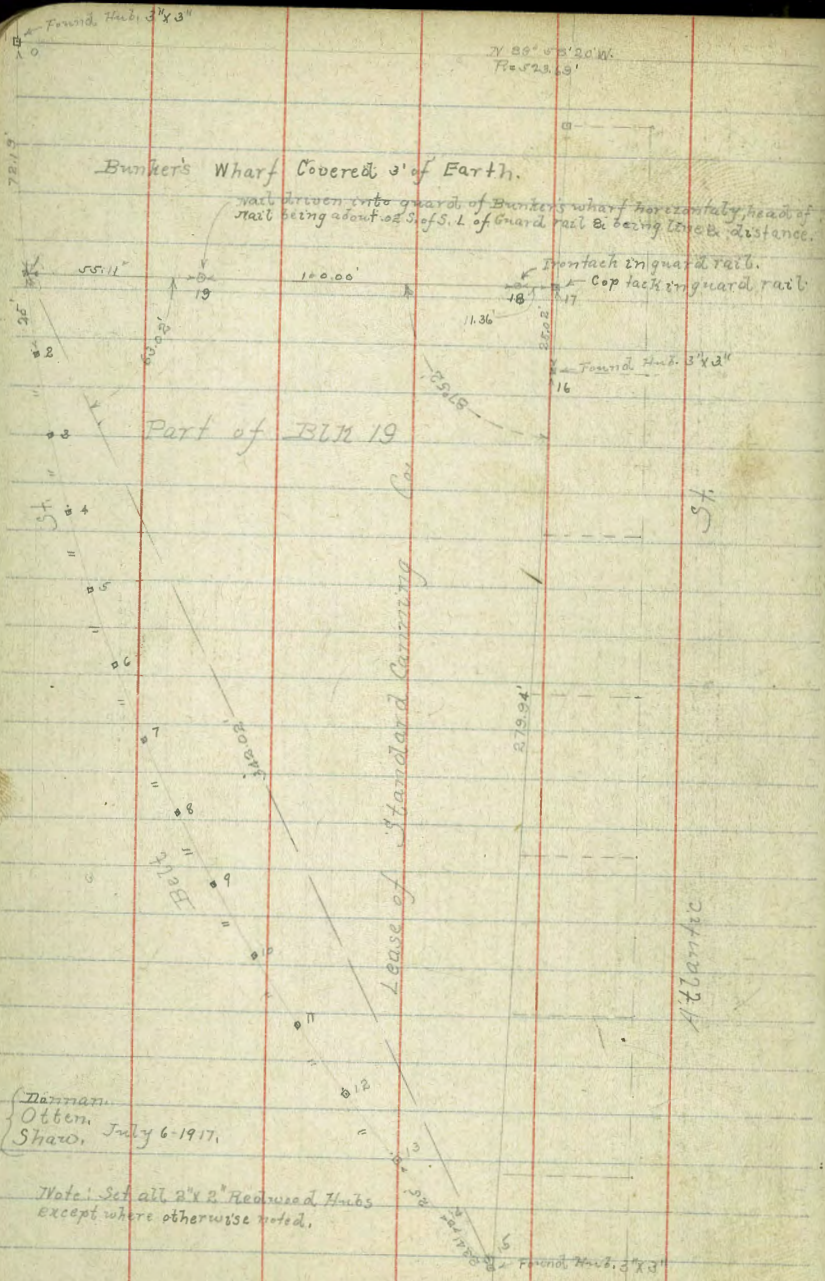 Found Hub. 3"X3"
0
72.19'
Bunker's Wharf Covered 3' of Earth.
Nail driven into guard of Bunker's wharf horizontaly, head of
nail being about .02 S. of S. L of Guard rail & being line & distance.
Iron tack in guard rail.
Cop tack in guard rail
55.11"
19
18
17
11.36'
25.02'
25'
2
Found Hub. 3"X3"
16
3
Part of Blk 19
St.
4
"
5
"
6
"
7
"
8
"
9
"
10
"
11
"
12
"
13
25'
Belt
Lease of Standard Canning Co.
279.94'
Atlantic St.
Otten.
Shaw. July 6-1917.
Note: Set all 2"X2" Redwood Hubs
except where otherwise noted.
Found Hub. 3"X3"